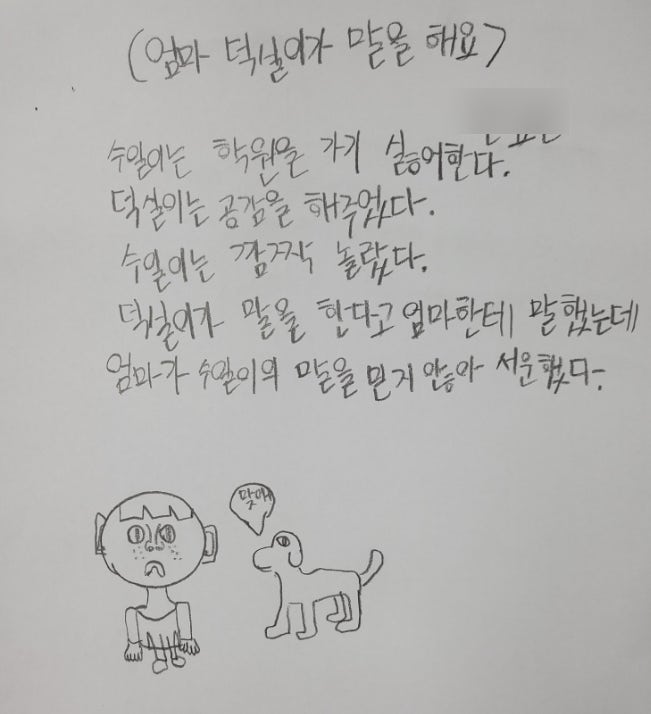 (엄마 덕실이가 말을 해요)
수일이는 학원을 가기 싫어한다.
덕실이는 공감을 해주었다.
수일이는 깜짝 놀랐다.
덕실이가 말을 한다고 엄마한테 말했는데
엄마가 수일이의 말을 믿지 않아 서운했다.
맞아